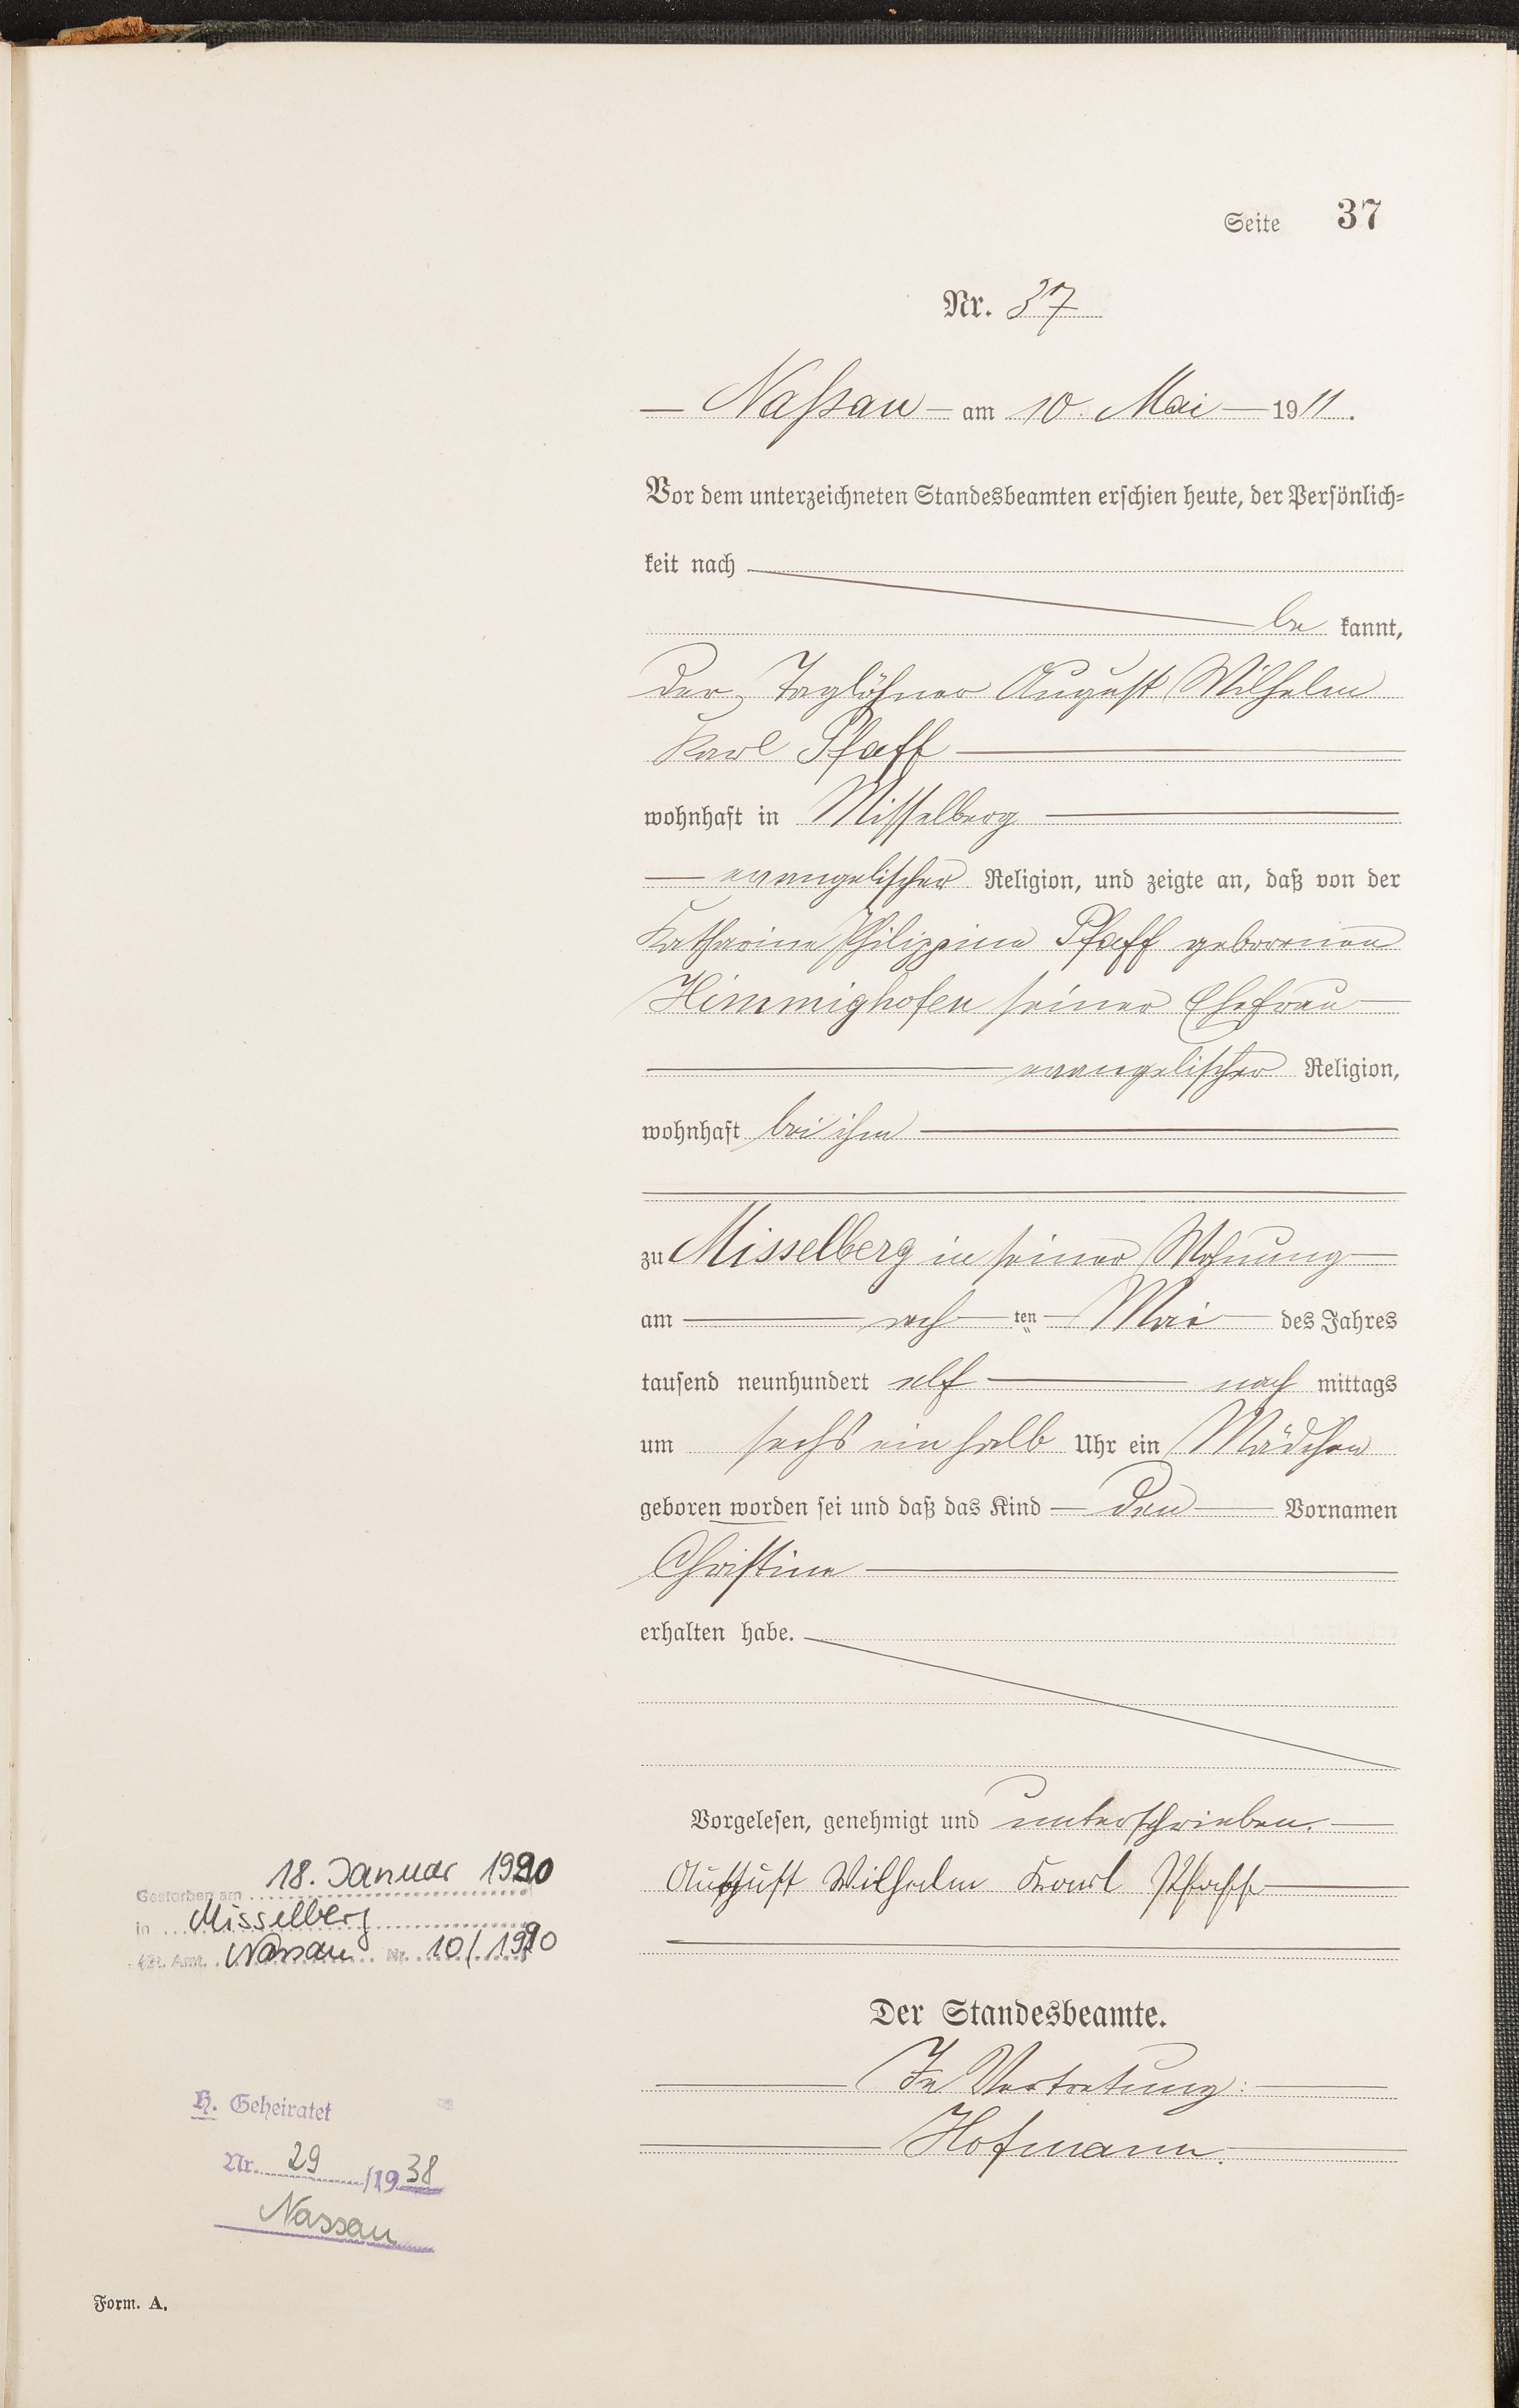 Seite 37
Nr. 37
— Naßau — am 10. Mai — 1911.
Vor dem unterzeichneten Standesbeamten erschien heute, der Persönlich-
keit nach
be kannt,
der Taglöhner August Wilhelm
Karl Pfaff
wohnhaft in Misselberg
— evangelischer Religion, und zeigte an, daß von der
Katharine Philippine Pfaff geborenen
Himmighofen seiner Ehefrau —
evangelischer Religion,
wohnhaft bei ihm
zu Misselberg in seiner Wohnung —
am — ach — ten — Mai — des Jahres
tausend neunhundert elf — nach mittags
um sechs ein halb Uhr ein Mädchen
geboren worden sei und daß das Kind — den — Vornamen
Christine
erhalten habe.
Vorgelesen, genehmigt und unterschrieben. —
August Wilhelm Karl Pfaff
Der Standesbeamte.
In Vertretung:
Hofmann.
Gestorben am 18. Januar 1990
in Misselberg
St. Amt. Nassau Nr. 10/1990
H. Geheiratet
Nr. 29 /1938
Nassau
Form. A.